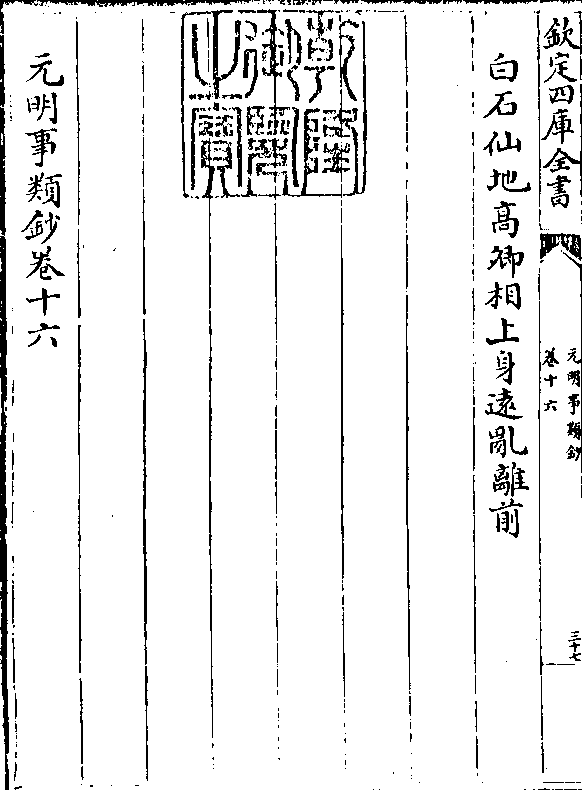 欽定四庫全書
元明事類鈔
卷十六
三十七
白石仙地高卿相上身遠亂離前
乾隆御覽之寶
元明事類鈔卷十六